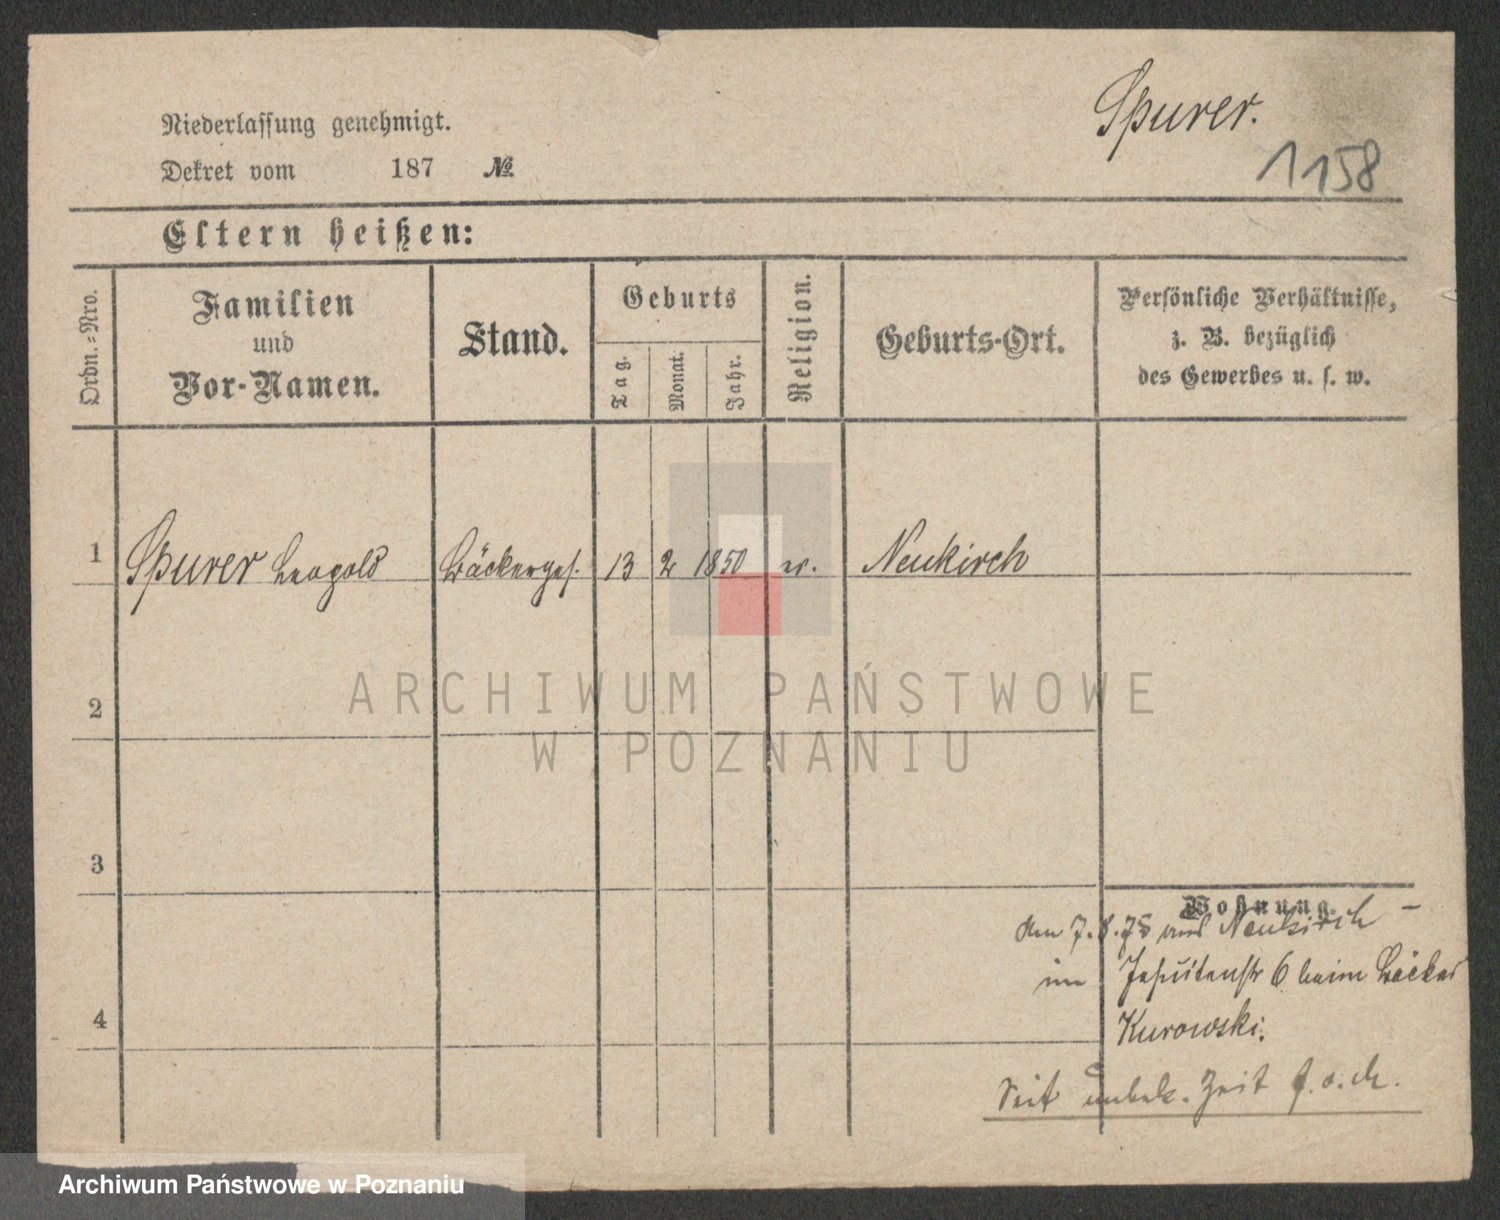 Spurer.
1158
Niederlassung genehmigt.
Dekret vom 187 №
Eltern heißen:
Ordn.-Nro.
Familien und Vor-Namen.
Stand.
Geburts
Tag.
Monat.
Jahr.
Religion.
Geburts-Ort.
Persönliche Verhältnisse,
z. B. bezüglich
des Gewerbes u. s. w.
1 Spurer Leopold Bäckerges. 13 2 1850 Neukirch
ARCHIWUM PAŃSTWOWE
W POZNANIU
2
3
4
Wohnung.
den 7.8.75 aus Neukirch –
im Jesuitenstr 6 beim Bäcker
Kurowski.
Seit unbek. Zeit
Archiwum Państwowe w Poznaniu